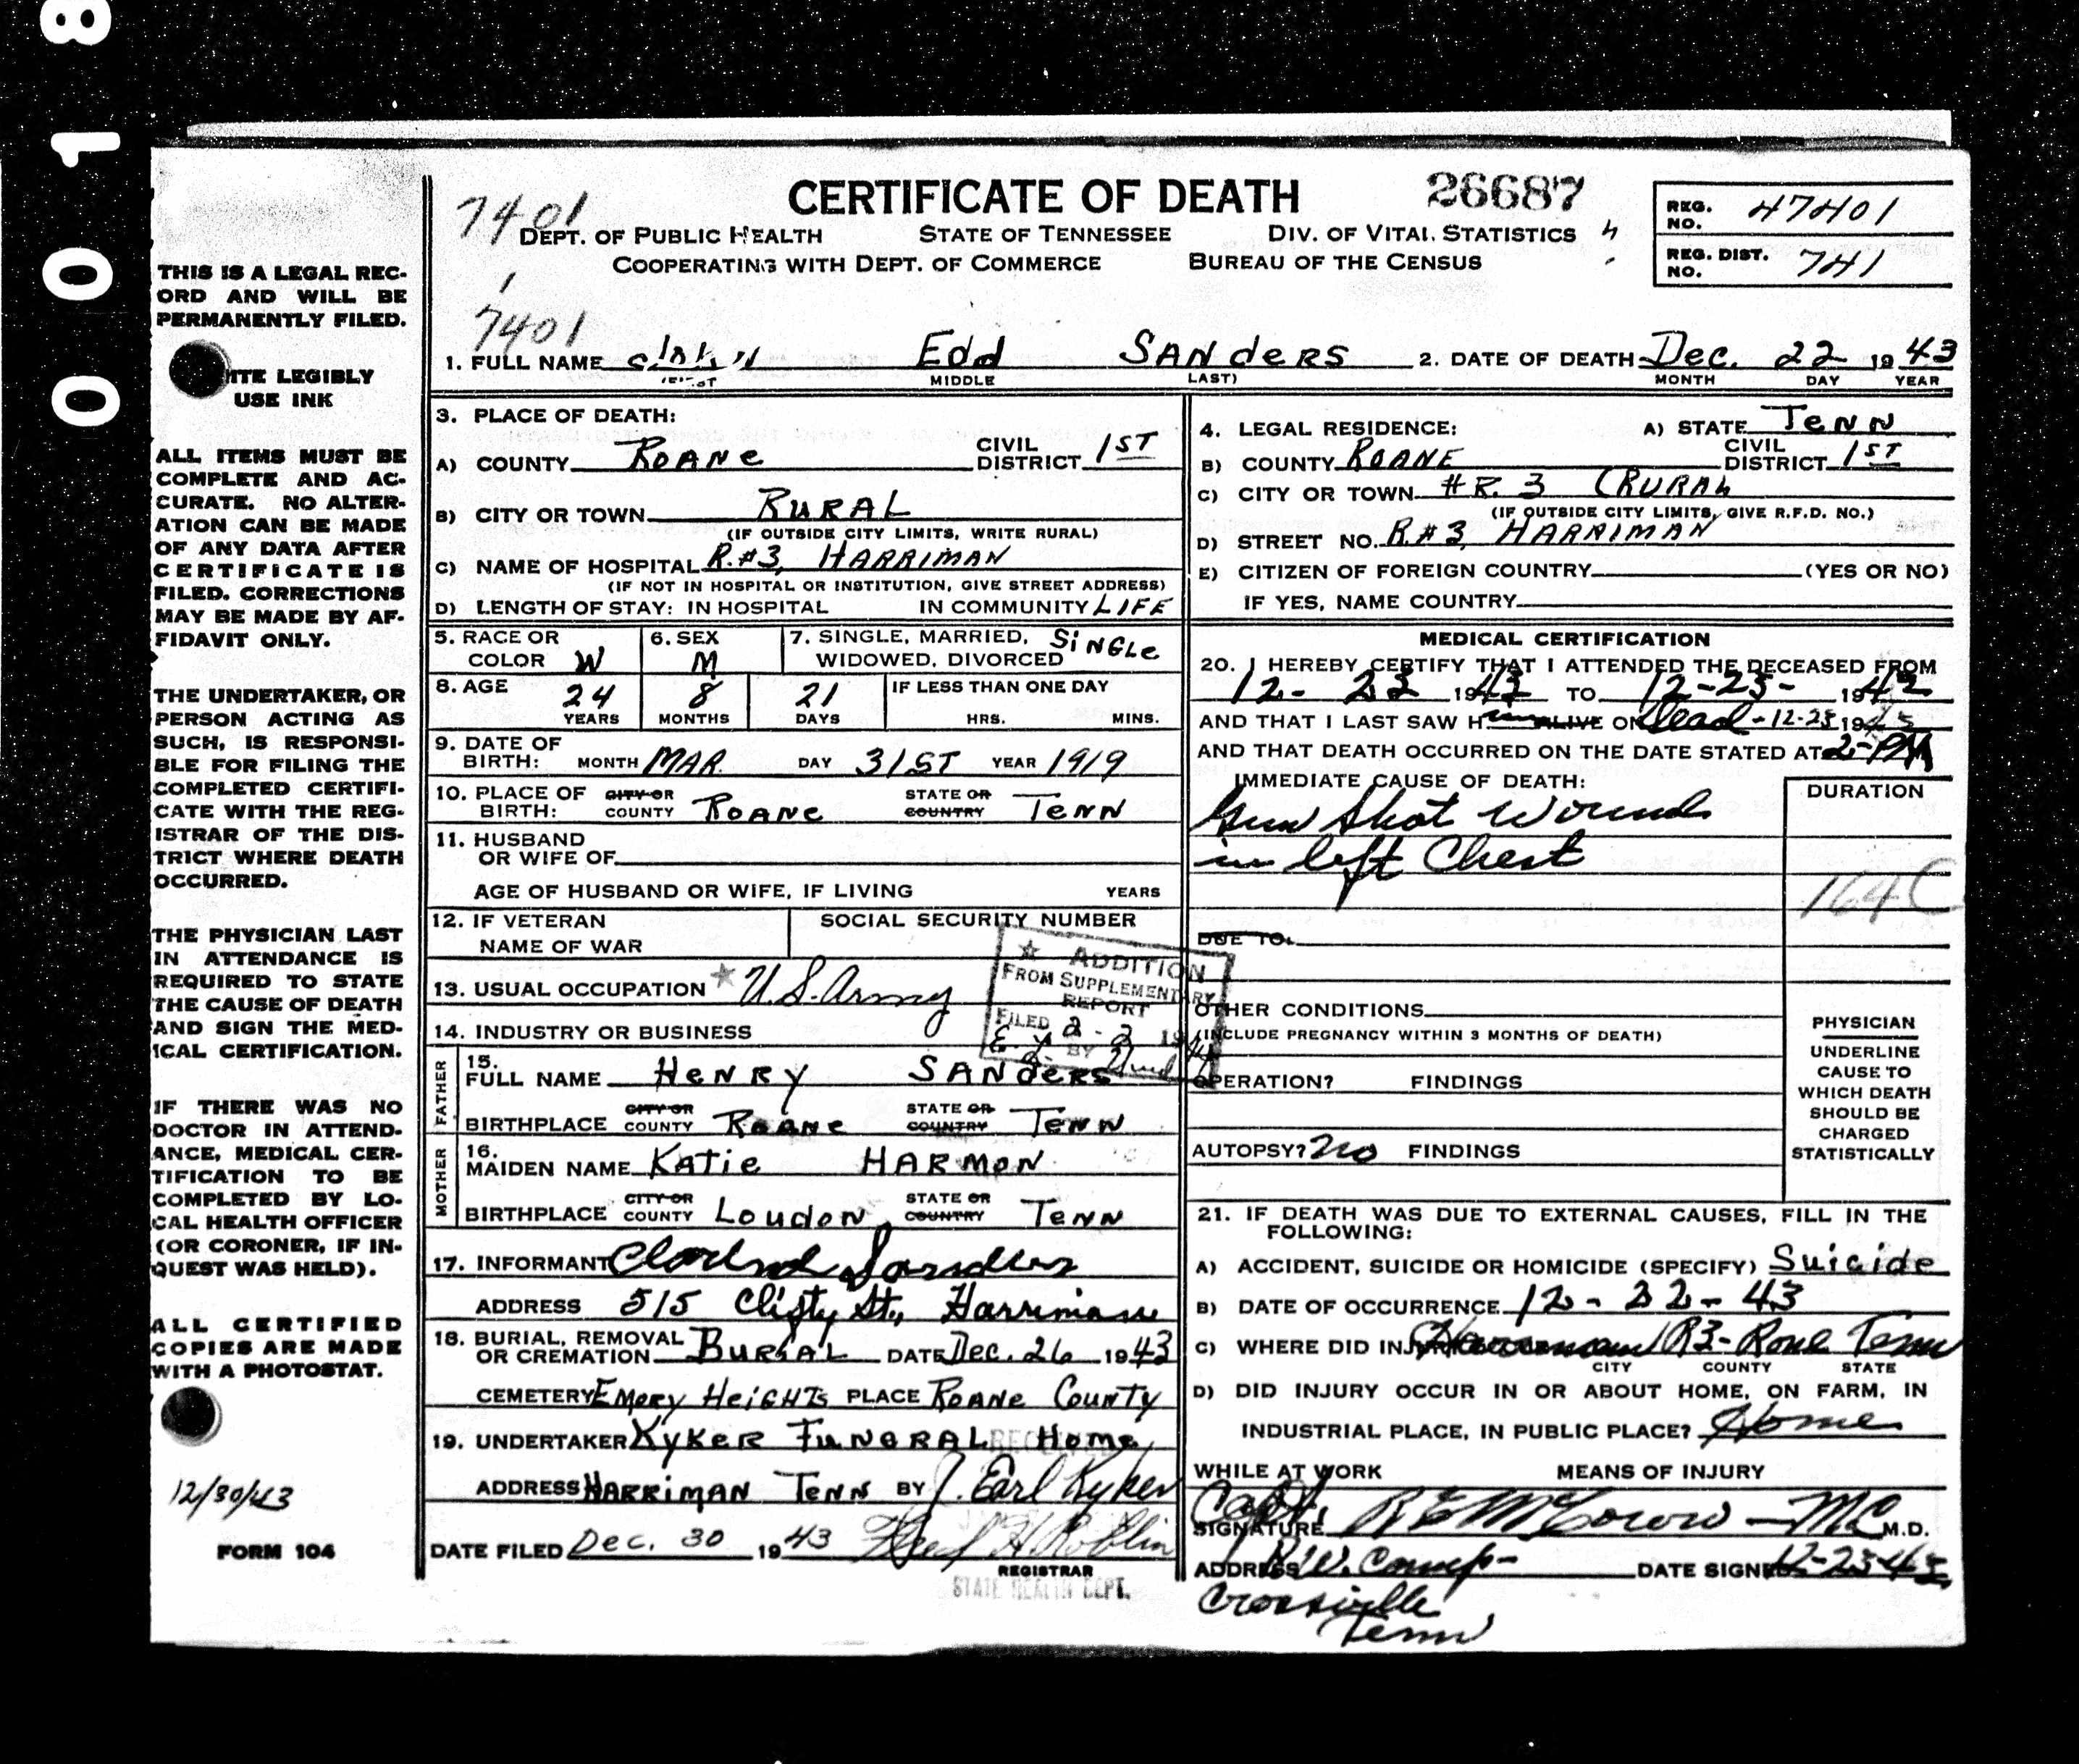 0018
CERTIFICATE OF DEATH
26687
7401
DEPT. OF PUBLIC HEALTH STATE OF TENNESSEE DIV. OF VITAL STATISTICS
COOPERATING WITH DEPT. OF COMMERCE BUREAU OF THE CENSUS
REG. NO. 47401
REG. DIST. NO. 741
7401
1. FULL NAME John Edd SANdeRS 2. DATE OF DEATH Dec. 22 19 43
MIDDLE LAST) MONTH DAY YEAR
THIS IS A LEGAL REC-
ORD AND WILL BE
PERMANENTLY FILED.
LEGIBLY
USE INK
ALL ITEMS MUST BE
COMPLETE AND AC-
CURATE. NO ALTER-
ATION CAN BE MADE
OF ANY DATA AFTER
CERTIFICATE IS
FILED. CORRECTIONS
MAY BE MADE BY AF-
FIDAVIT ONLY.
THE UNDERTAKER, OR
PERSON ACTING AS
SUCH, IS RESPONSI-
BLE FOR FILING THE
COMPLETED CERTIFI-
CATE WITH THE REG-
ISTRAR OF THE DIS-
TRICT WHERE DEATH
OCCURRED.
THE PHYSICIAN LAST
IN ATTENDANCE IS
REQUIRED TO STATE
THE CAUSE OF DEATH
AND SIGN THE MED-
ICAL CERTIFICATION.
IF THERE WAS NO
DOCTOR IN ATTEND-
ANCE, MEDICAL CER-
TIFICATION TO BE
COMPLETED BY LO-
CAL HEALTH OFFICER
(OR CORONER, IF IN-
QUEST WAS HELD).
ALL CERTIFIED
COPIES ARE MADE
WITH A PHOTOSTAT.
12/30/43
FORM 104
3. PLACE OF DEATH:
A) COUNTY ROANe CIVIL DISTRICT 1ST
B) CITY OR TOWN RURAL
(IF OUTSIDE CITY LIMITS, WRITE RURAL)
C) NAME OF HOSPITAL R.#3, HARRIMAN
(IF NOT IN HOSPITAL OR INSTITUTION, GIVE STREET ADDRESS)
D) LENGTH OF STAY: IN HOSPITAL IN COMMUNITY LIFE
5. RACE OR COLOR W 6. SEX M 7. SINGLE, MARRIED, WIDOWED, DIVORCED SiNGLe
8. AGE 24 8 21 IF LESS THAN ONE DAY
YEARS MONTHS DAYS HRS. MINS.
9. DATE OF BIRTH: MONTH MAR. DAY 31ST YEAR 1919
10. PLACE OF BIRTH: CITY OR COUNTY ROANe STATE OR COUNTRY TeNN
11. HUSBAND
OR WIFE OF
AGE OF HUSBAND OR WIFE, IF LIVING YEARS
12. IF VETERAN SOCIAL SECURITY NUMBER
NAME OF WAR
13. USUAL OCCUPATION U.S. Army
ADDITION
FROM SUPPLEMENTARY
REPORT
FILED 2-2 1944
BY
14. INDUSTRY OR BUSINESS
FATHER
15. FULL NAME HeNRY SANdeRS
BIRTHPLACE CITY OR COUNTY ROANe STATE OR COUNTRY TeNN
MOTHER
16. MAIDEN NAME KATie HARMON
BIRTHPLACE CITY OR COUNTY LOUDON, STATE OR COUNTRY TeNN
17. INFORMANT Sandlers
ADDRESS 515 Clifty St., Harriman
18. BURIAL, REMOVAL OR CREMATION BURiAL DATE Dec. 26 19 43
CEMETERY EMORY HeiGHTs PLACE ROANe COUNTY
19. UNDERTAKER KYKER FUNeRAL Home
ADDRESS HARRiMAN TeNN BY J. Earl Kyker
DATE FILED Dec. 30 19 43
REGISTRAR
STATE HEALTH DEPT.
4. LEGAL RESIDENCE: A) STATE TeNN
B) COUNTY ROANE CIVIL DISTRICT 1ST
C) CITY OR TOWN #R. 3 (RURAL
(IF OUTSIDE CITY LIMITS, GIVE R.F.D. NO.)
D) STREET NO. R.#3, HARRIMAN
E) CITIZEN OF FOREIGN COUNTRY (YES OR NO)
IF YES, NAME COUNTRY
MEDICAL CERTIFICATION
20. I HEREBY CERTIFY THAT I ATTENDED THE DECEASED FROM
12-23 1943 TO 12-23- 1943
AND THAT I LAST SAW Him ALIVE ON Dead-12-23 1943
AND THAT DEATH OCCURRED ON THE DATE STATED AT 2-PM
IMMEDIATE CAUSE OF DEATH: DURATION
Gun Shot Wound
in left Chest
164C
DUE TO
OTHER CONDITIONS
(INCLUDE PREGNANCY WITHIN 3 MONTHS OF DEATH)
OPERATION? FINDINGS
AUTOPSY? no FINDINGS
PHYSICIAN
UNDERLINE
CAUSE TO
WHICH DEATH
SHOULD BE
CHARGED
STATISTICALLY
21. IF DEATH WAS DUE TO EXTERNAL CAUSES, FILL IN THE
FOLLOWING:
A) ACCIDENT, SUICIDE OR HOMICIDE (SPECIFY) Suicide
B) DATE OF OCCURRENCE 12-22-43
C) WHERE DID INJ Harriman R3- Rone Tenn
CITY COUNTY STATE
D) DID INJURY OCCUR IN OR ABOUT HOME, ON FARM, IN
INDUSTRIAL PLACE, IN PUBLIC PLACE? Home
WHILE AT WORK MEANS OF INJURY
Capt.
SIGNATURE M.C. M.D.
ADDRESS P.W. Camp- DATE SIGNED 12-23-43
Crossville
Tenn